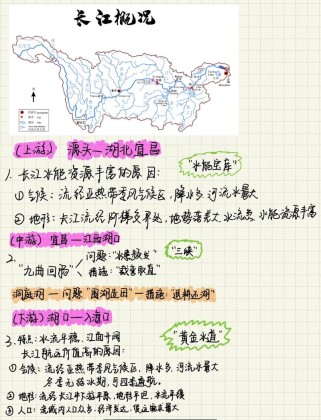 长江概况
(上游) 源头—湖北宜昌
"水能宝库"
1. 长江水能资源丰富的原因:
①气候: 流经亚热带季风气候区, 降水多, 河流水量大
②地形: 长江流经阶梯交界处, 地势落差大, 水流急, 水能资源丰富
(中游) 宜昌—江西湖口
2. "九曲回肠"
问题: "水患频发"
措施: "裁弯取直"
"三峡"
洞庭湖—问题"围湖造田"—措施: 退耕还湖
(下游) 湖口—入海口
"黄金水道"
3. 特点: 水流平稳, 江阔
长江航运价值高的原因:
①气候: 流经亚热带季风气候区, 降水多, 河流水量大
冬季无结冰期, 可四季通航。
②地形: 流经长江中下游平原, 地形平坦, 水流平缓
③人口: 流域内人口众多, 经济发达, 货运量大